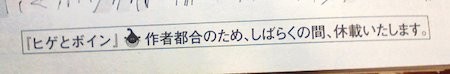 『ヒゲとボイン』作者都合のため、しばらくの間、休載いたします。